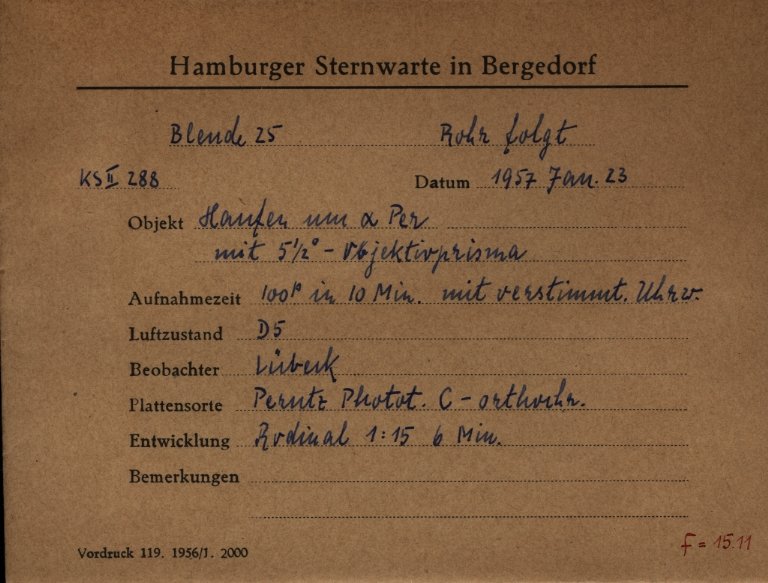 Hamburger Sternwarte in Bergedorf
Blende 25 Rohr folgt
KS II 288 Datum 1957 Jan. 23
Objekt Haufen um α Per
mit 5½° - Objektivprisma
Aufnahmezeit 100P in 10 Min. mit verstimmt. Uhrw.
Luftzustand D5
Beobachter Lübeck
Plattensorte Perutz Photot. C - orthochr.
Entwicklung Rodinal 1:15 6 Min.
Bemerkungen
Vordruck 119. 1956/1. 2000
F = 15.11